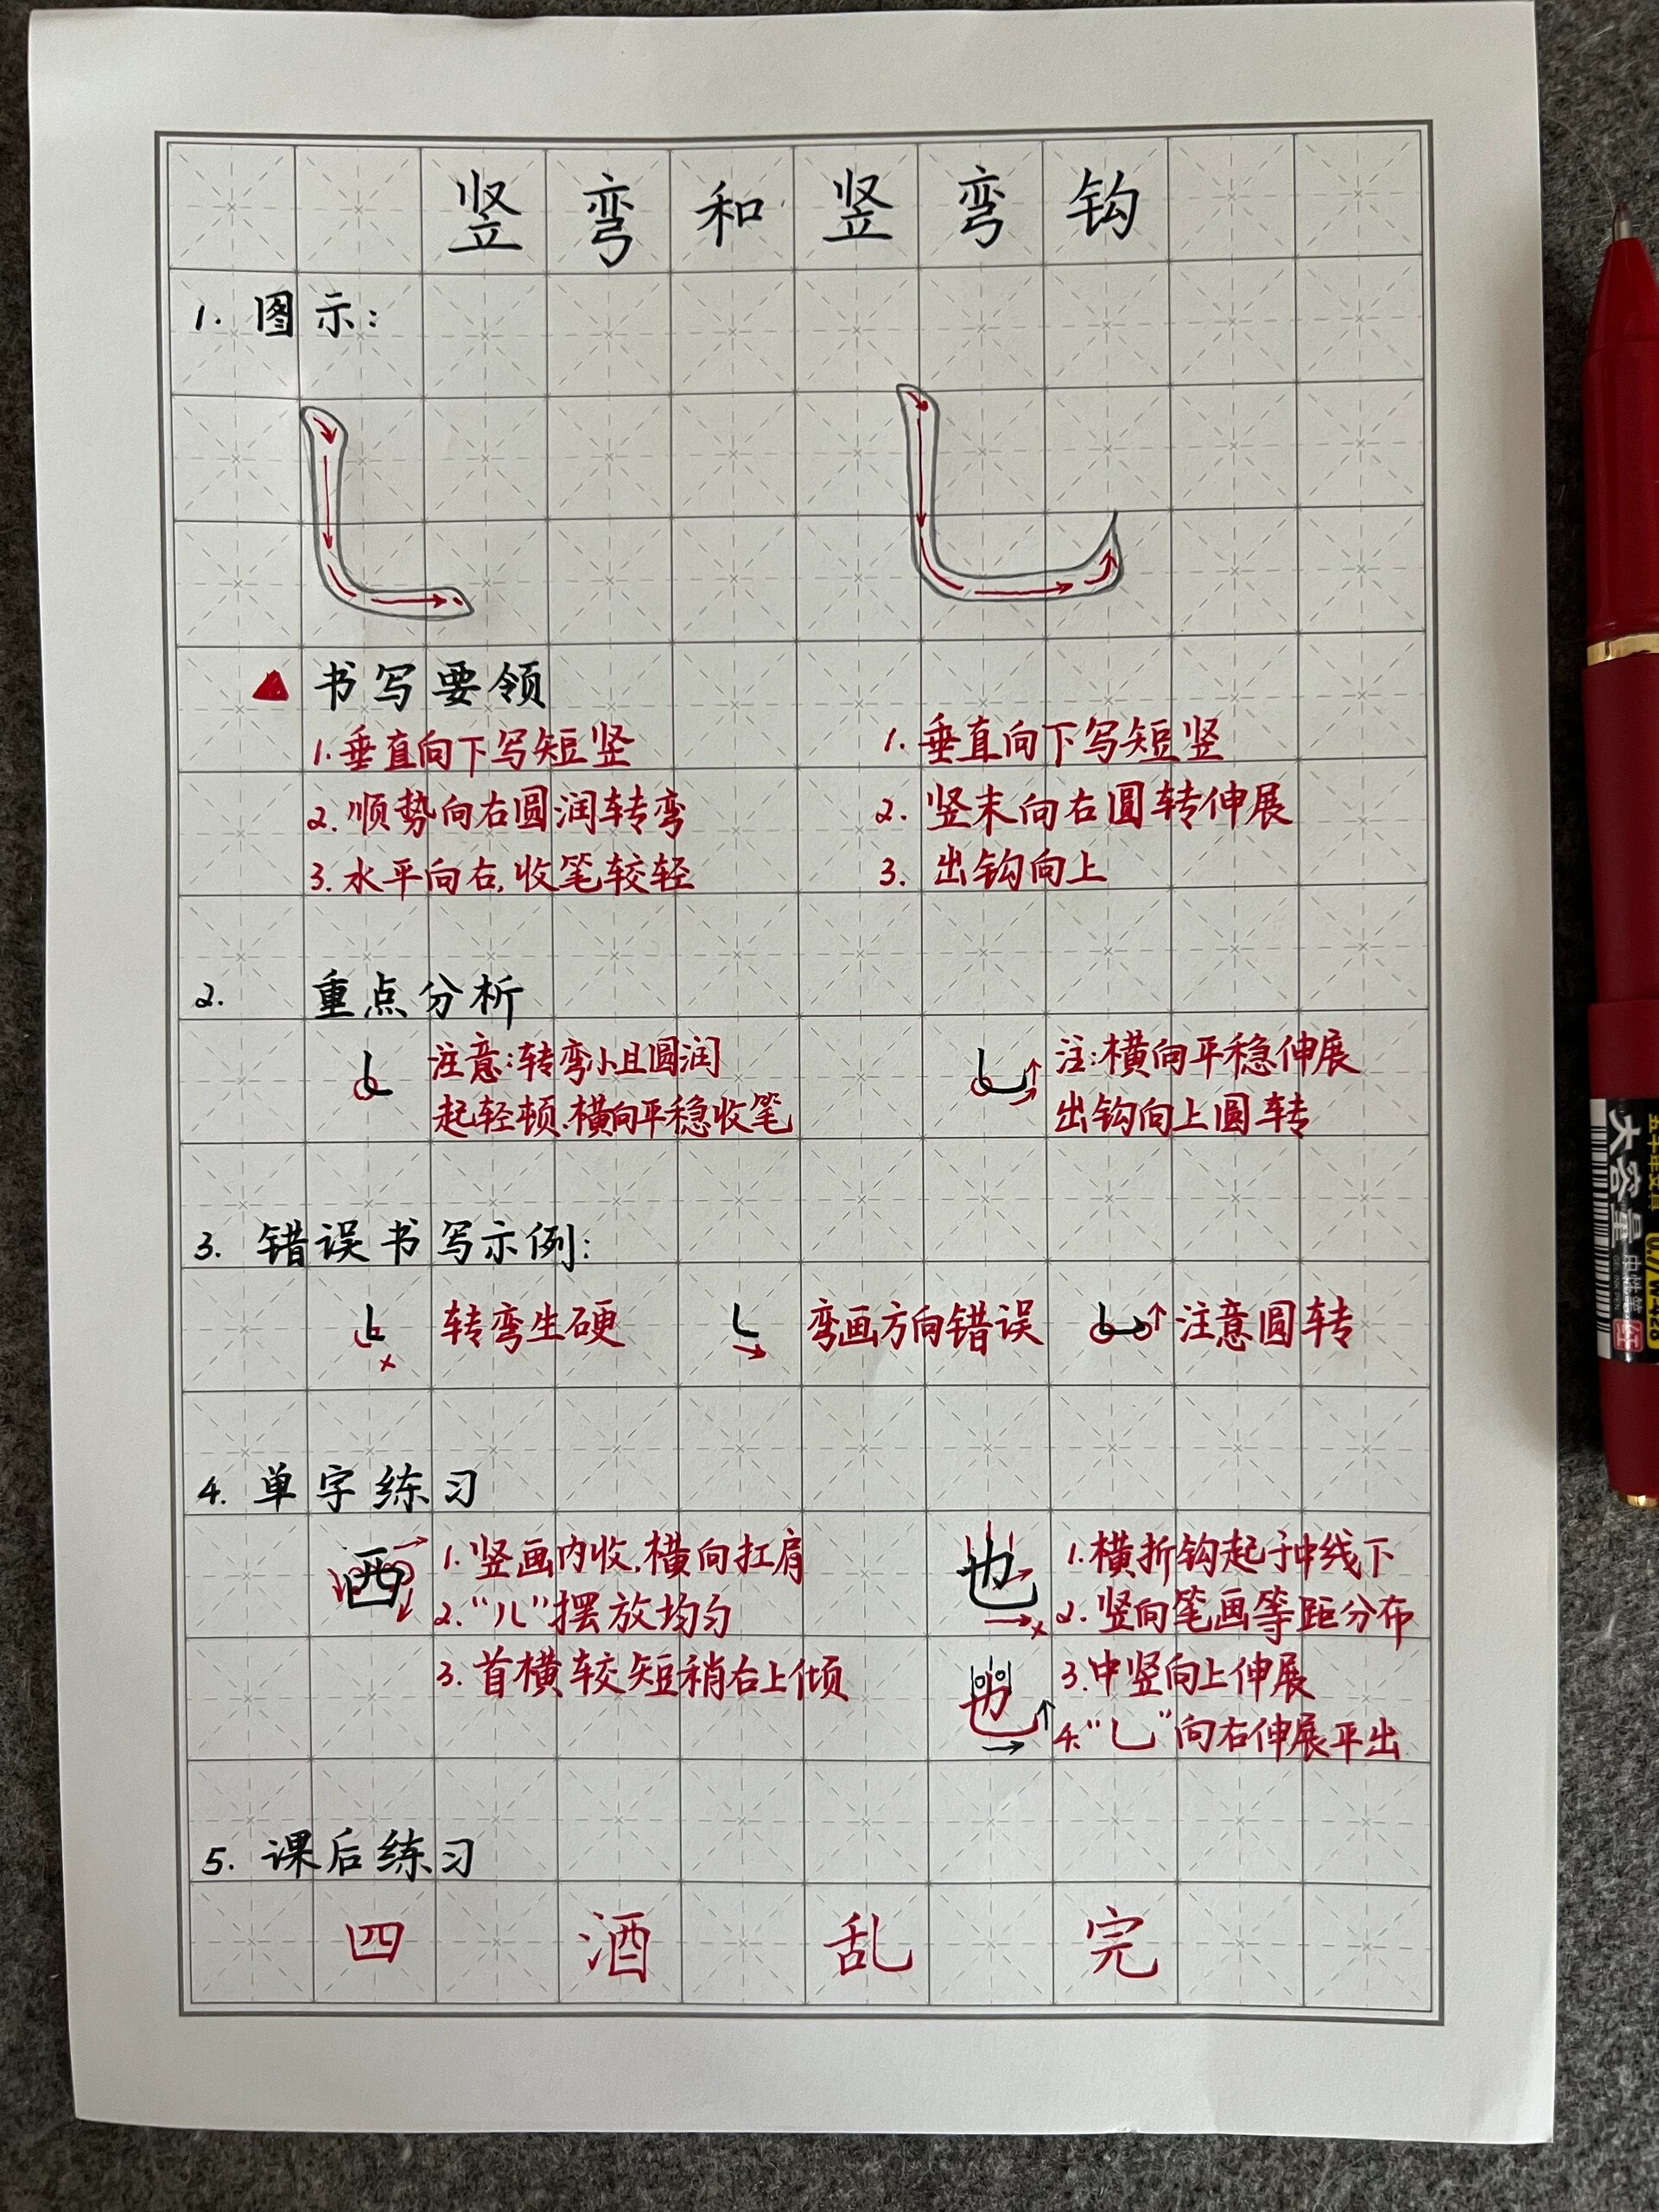 竖弯和竖弯钩
1. 图示:
▲ 书写要领
1. 垂直向下写短竖
2. 顺势向右圆润转弯
3. 水平向右,收笔较轻
1. 垂直向下写短竖
2. 竖末向右圆转伸展
3. 出钩向上
2. 重点分析
注意:转弯小且圆润
起轻顿.横向平稳收笔
注:横向平稳伸展
出钩向上圆转
3. 错误书写示例:
转弯生硬
弯画方向错误
注意圆转
4. 单字练习
西
1. 竖画内收,横向扛肩
2. “儿”摆放均匀
3. 首横较短稍右上倾
也
1. 横折钩起于中线下
2. 竖向笔画等距分布
也
3. 中竖向上伸展
4. “乚”向右伸展平出
5. 课后练习
四 酒 乱 完
大容量
中性笔
红